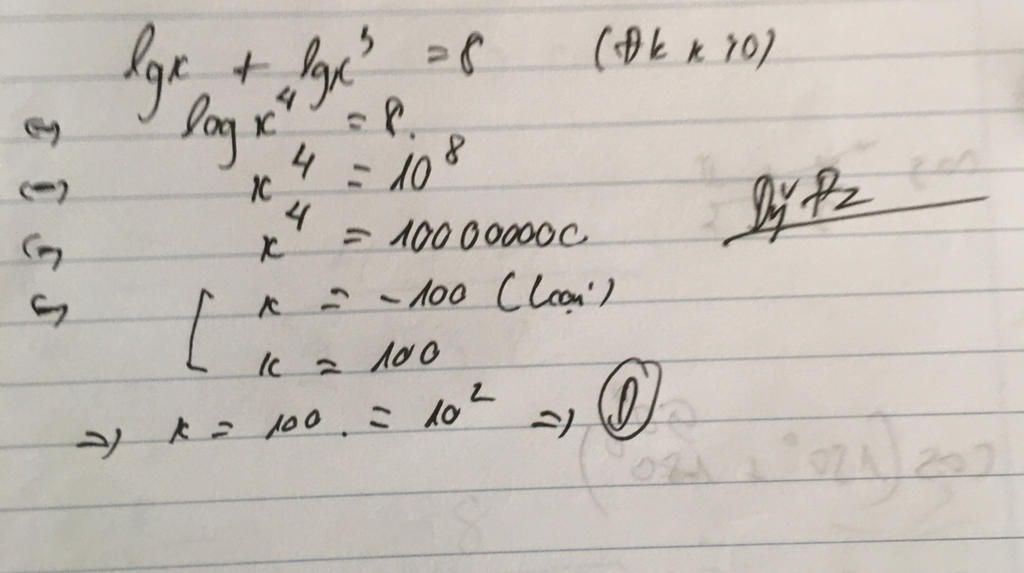 lgx + lgx³ = 8 (Đk x > 0)
⇔ log x⁴ = 8.
⇔ x⁴ = 10⁸
⇔ x⁴ = 100000000
⇔ [ x = -100 (loại)
x = 100
⇒ x = 100. = 10² ⇒ D